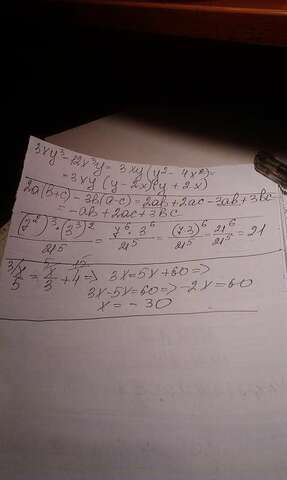 3xy³ - 12x³y = 3xy(y² - 4x²) =
= 3xy(y - 2x)(y + 2x)
2a(b+c) - 3b(a-c) = 2ab + 2ac - 3ab + 3bc
= -ab + 2ac + 3bc
(7²)³·(3³)²/21⁵ = 7⁶·3⁶/21⁵ = (7·3)⁶/21⁵ = 21⁶/21⁵ = 21
3/ x/5 = x/3 + 4 => 3x = 5x + 60 =>
3x - 5x = 60 => -2x = 60
x = -30